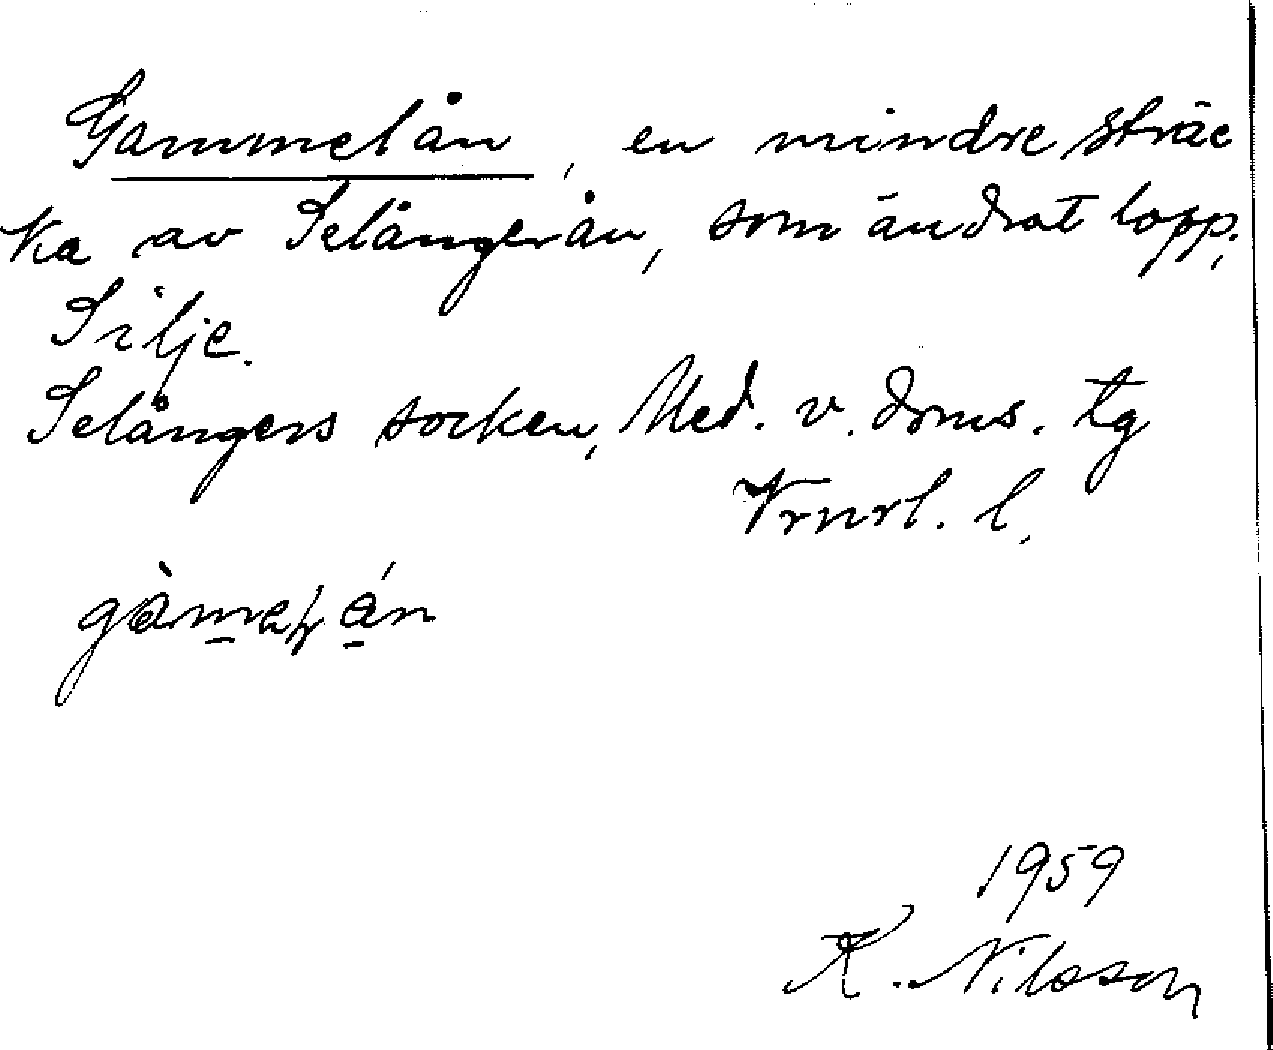 Gammelån, en mindre sträc
ka av Selångerån, som ändrat lopp;
Silje.
Selångers socken, Med. v. doms. tg
Vrnrl. l.
1959
K. Nilsson